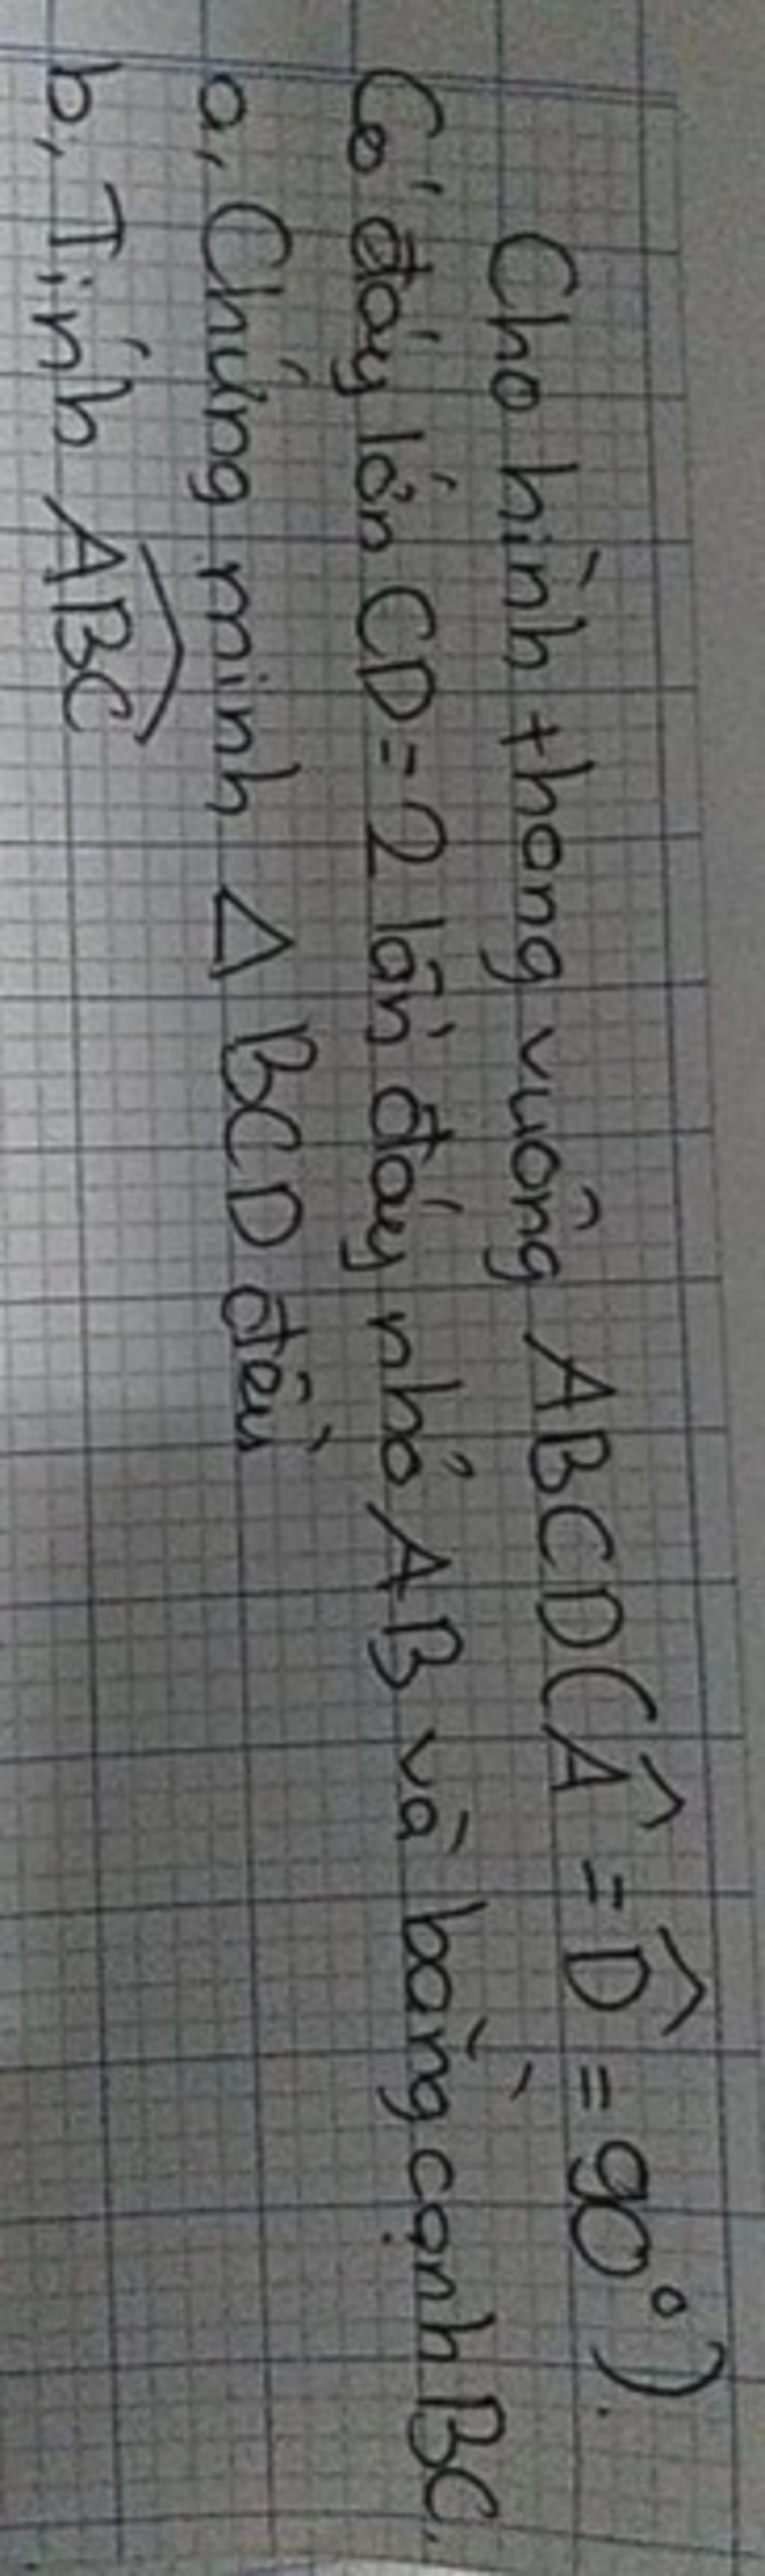 Cho hình thang vuông ABCD(Â = D̂ = 90°).
Có đáy lớn CD = 2 lần đáy nhỏ AB và bằng cạnh BC.
a, Chứng minh Δ BCD đều
b, Tính \widehat{ABC}